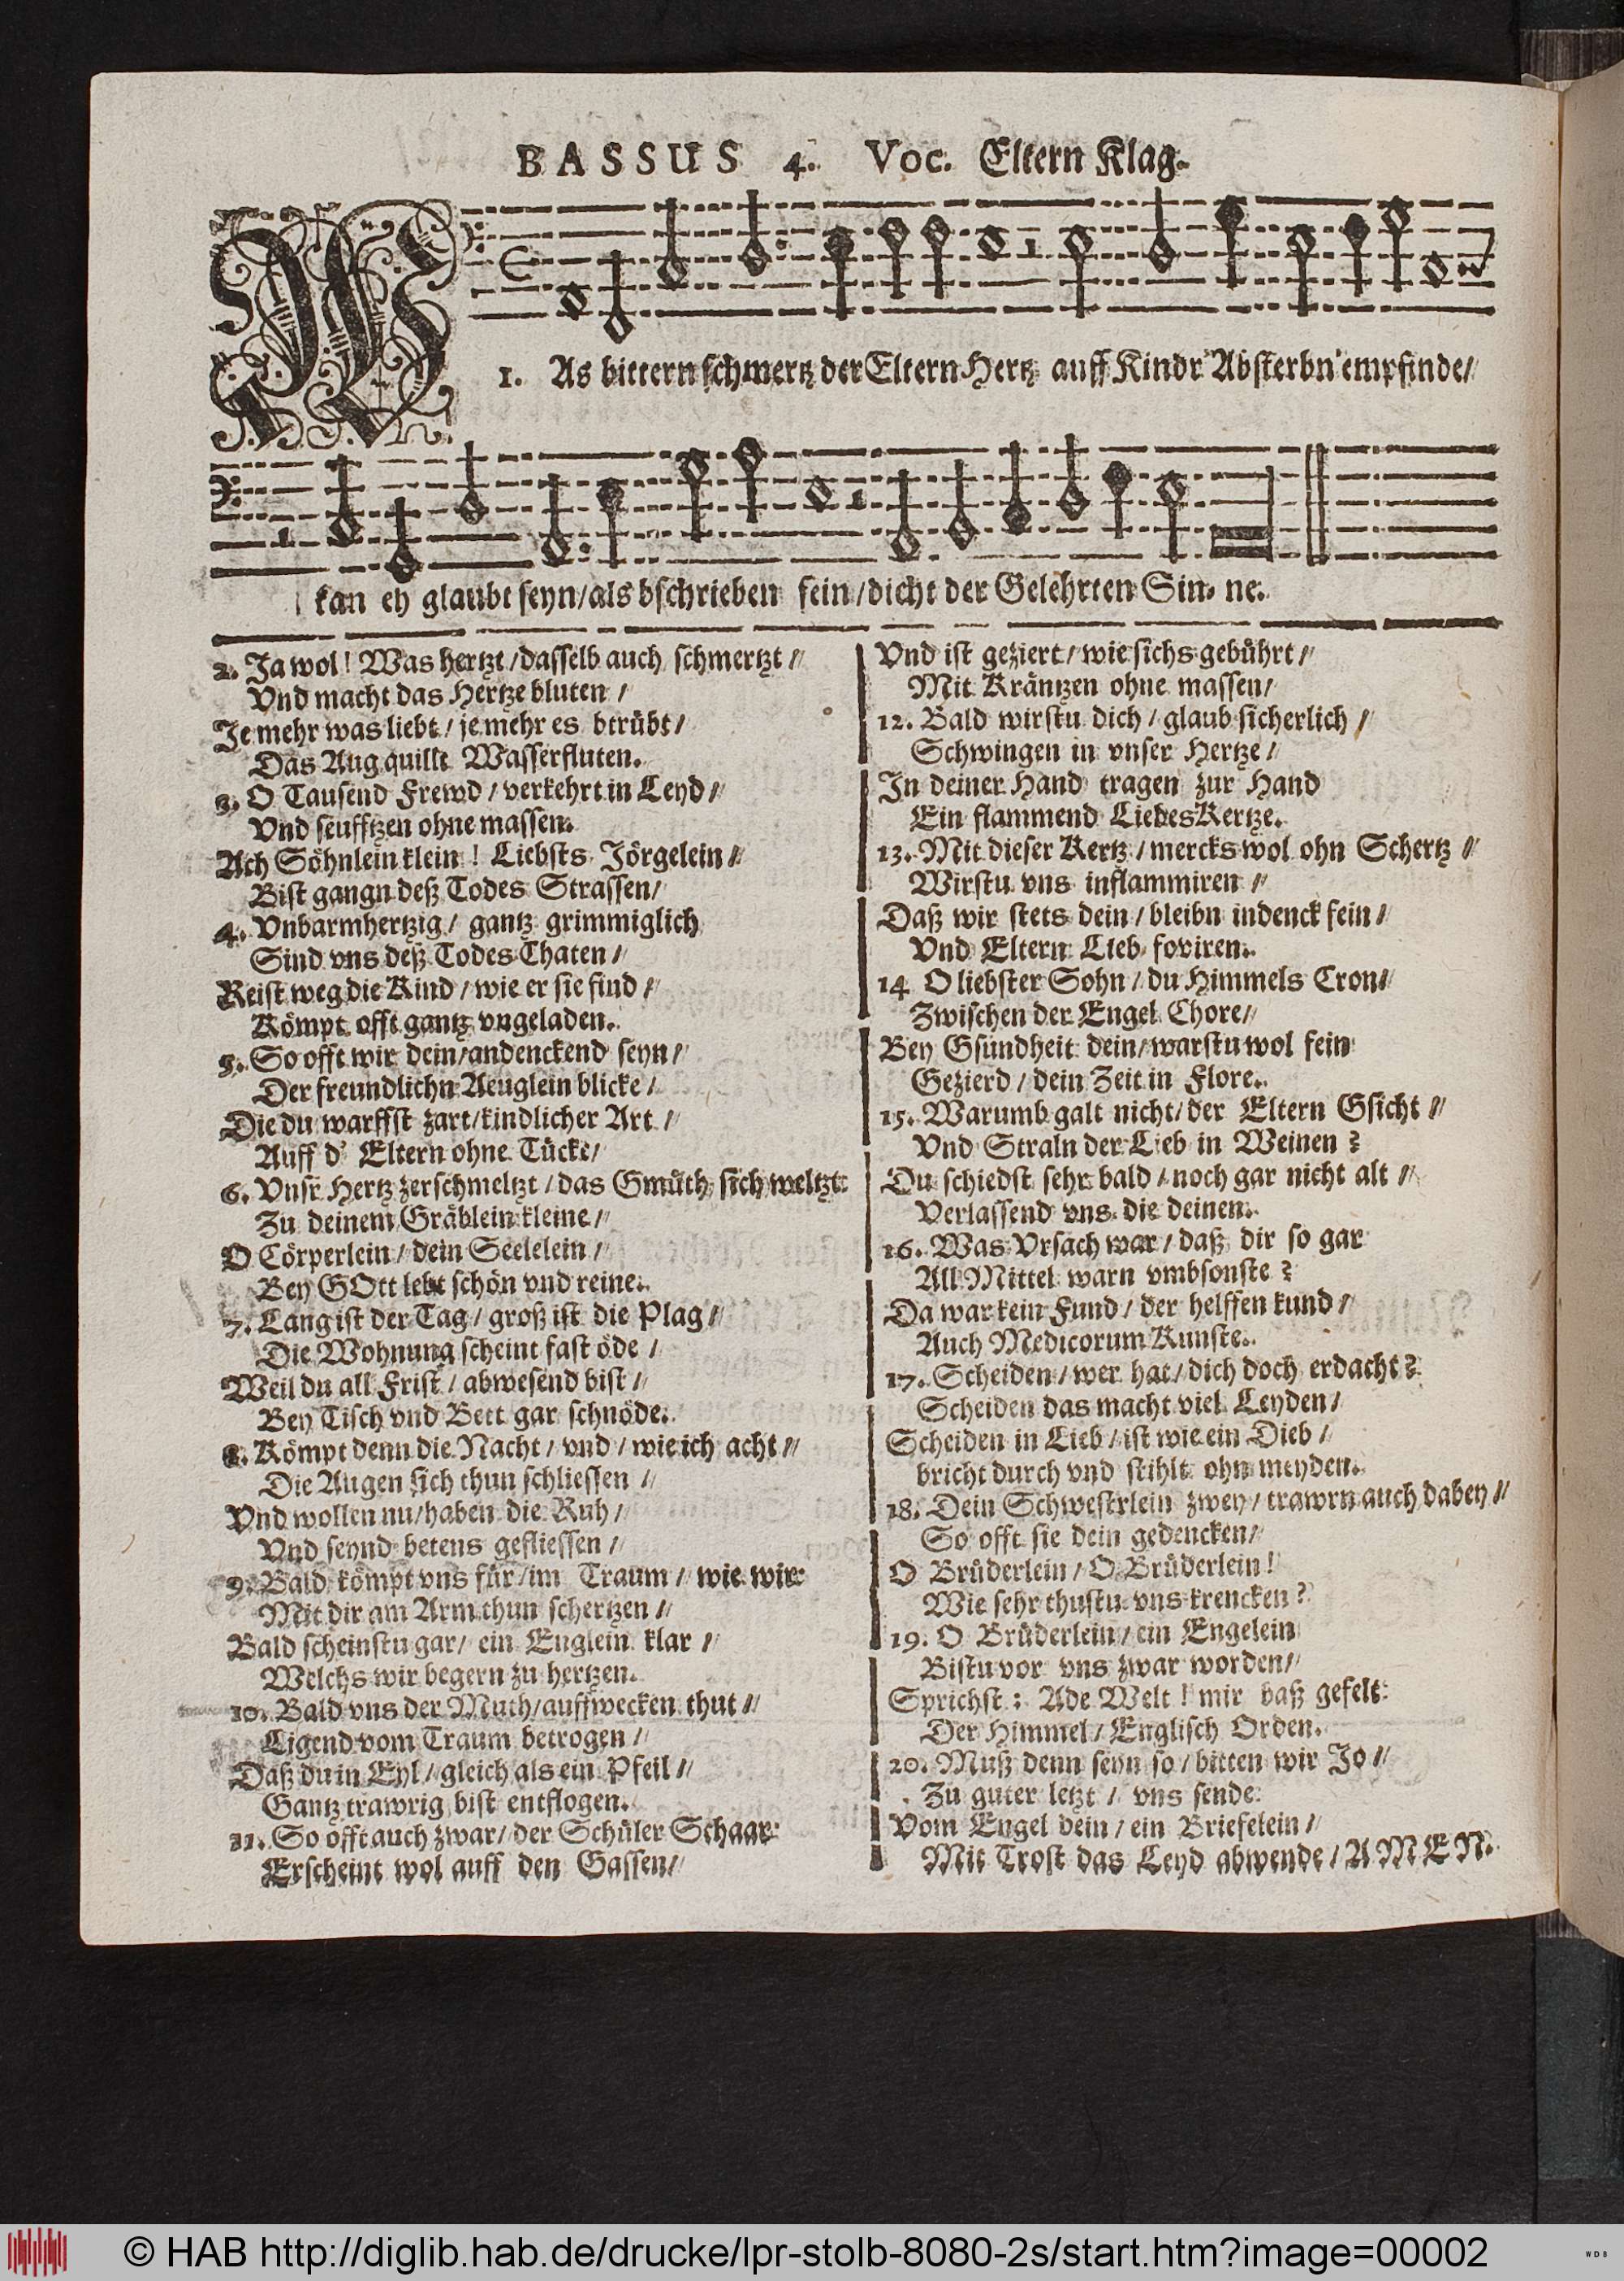 BASSUS 4. Voc. Eltern Klag.
W
1. As bittern schmertz der Eltern Hertz auff Kindr' Absterbn empfinde/
kan ey glaubt seyn/als bschrieben fein/dicht der Gelehrten Sin- ne.
2. Ja wol! Was hertzt/dasselb auch schmertzt/
Vnd macht das Hertze bluten/
Je mehr was liebt/je mehr es btrübt/
Das Aug quillt Wasserfluten.
3. O Tausend Frewd/verkehrt in Leyd/
Vnd seufftzen ohne massen.
Ach Söhnlein klein! Liebsts Jörgelein/
Bist gangn deß Todes Strassen/
4. Vnbarmhertzig/gantz grimmiglich
Sind vns deß Todes Thaten/
Reist weg die Kind/wie er sie find/
Kömpt offt gantz vngeladen.
5. So offt wir dein/andenckend seyn/
Der freundlichn Aeuglein blicke/
Die du warffst zart/kindlicher Art/
Auff d' Eltern ohne Tücke/
6. Vnsr Hertz zerschmeltzt/das Gmüth sich weltzt
Zu deinem Gräblein kleine/
O Cörperlein/dein Seelelein/
Bey GOtt lebt schön vnd reine.
7. Lang ist der Tag/groß ist die Plag/
Die Wohnung scheint fast öde/
Weil du all Frist/abwesend bist/
Bey Tisch vnd Bett gar schnöde.
8. Kömpt denn die Nacht/vnd/wie ich acht/
Die Augen sich thun schliessen/
Vnd wollen nu/haben die Ruh/
Vnd seynd betens gefliessen/
9. Bald kömpt vns für/im Traum/wie wir
Mit dir am Arm thun schertzen/
Bald scheinstu gar/ein Englein klar/
Welchs wir begern zu hertzen.
10. Bald vns der Muth/auffwecken thut/
Ligend vom Traum betrogen/
Daß du in Eyl/gleich als ein Pfeil/
Gantz trawrig bist entflogen.
11. So offt auch zwar/der Schüler Schaar
Erscheint wol auff den Gassen/
Vnd ist geziert/wie sichs gebührt/
Mit Kräntzen ohne massen/
12. Bald wirstu dich/glaub sicherlich/
Schwingen in vnser Hertze/
In deiner Hand tragen zur Hand
Ein flammend LiebesKertze.
13. Mit dieser Kertz/mercks wol ohn Schertz/
Wirstu vns inflammiren/
Daß wir stets dein/bleibn indenck fein/
Vnd Eltern Lieb foviren.
14 O liebster Sohn/du Himmels Cron/
Zwischen der Engel Chore/
Bey Gsundheit dein/warstu wol fein
Gezierd/dein Zeit in Flore.
15. Warumb galt nicht/der Eltern Gsicht/
Vnd Straln der Lieb in Weinen?
Du schiedst sehr bald/noch gar nicht alt/
Verlassend vns die deinen.
16. Was Vrsach war/daß dir so gar
All Mittel warn vmbsonste?
Da war kein Fund/der helffen kund/
Auch Medicorum Kunste.
17. Scheiden/wer hat/dich doch erdacht?
Scheiden das macht viel Leyden/
Scheiden in Lieb/ist wie ein Dieb/
bricht durch vnd stihlt ohn meyden.
18. Dein Schwestrlein zwey/trawrn auch dabey/
So offt sie dein gedencken/
O Brüderlein/O Brüderlein!
Wie sehr thustu vns krencken?
19. O Brüderlein/ein Engelein
Bistu vor vns zwar worden/
Sprichst: Ade Welt! mir baß gefelt
Der Himmel/Englisch Orden.
20. Muß denn seyn so/bitten wir Jo/
Zu guter letzt/vns sende
Vom Engel dein/ein Briefelein/
Mit Trost das Leyd abwende/AMEN.
© HAB http://diglib.hab.de/drucke/lpr-stolb-8080-2s/start.htm?image=00002
WDB